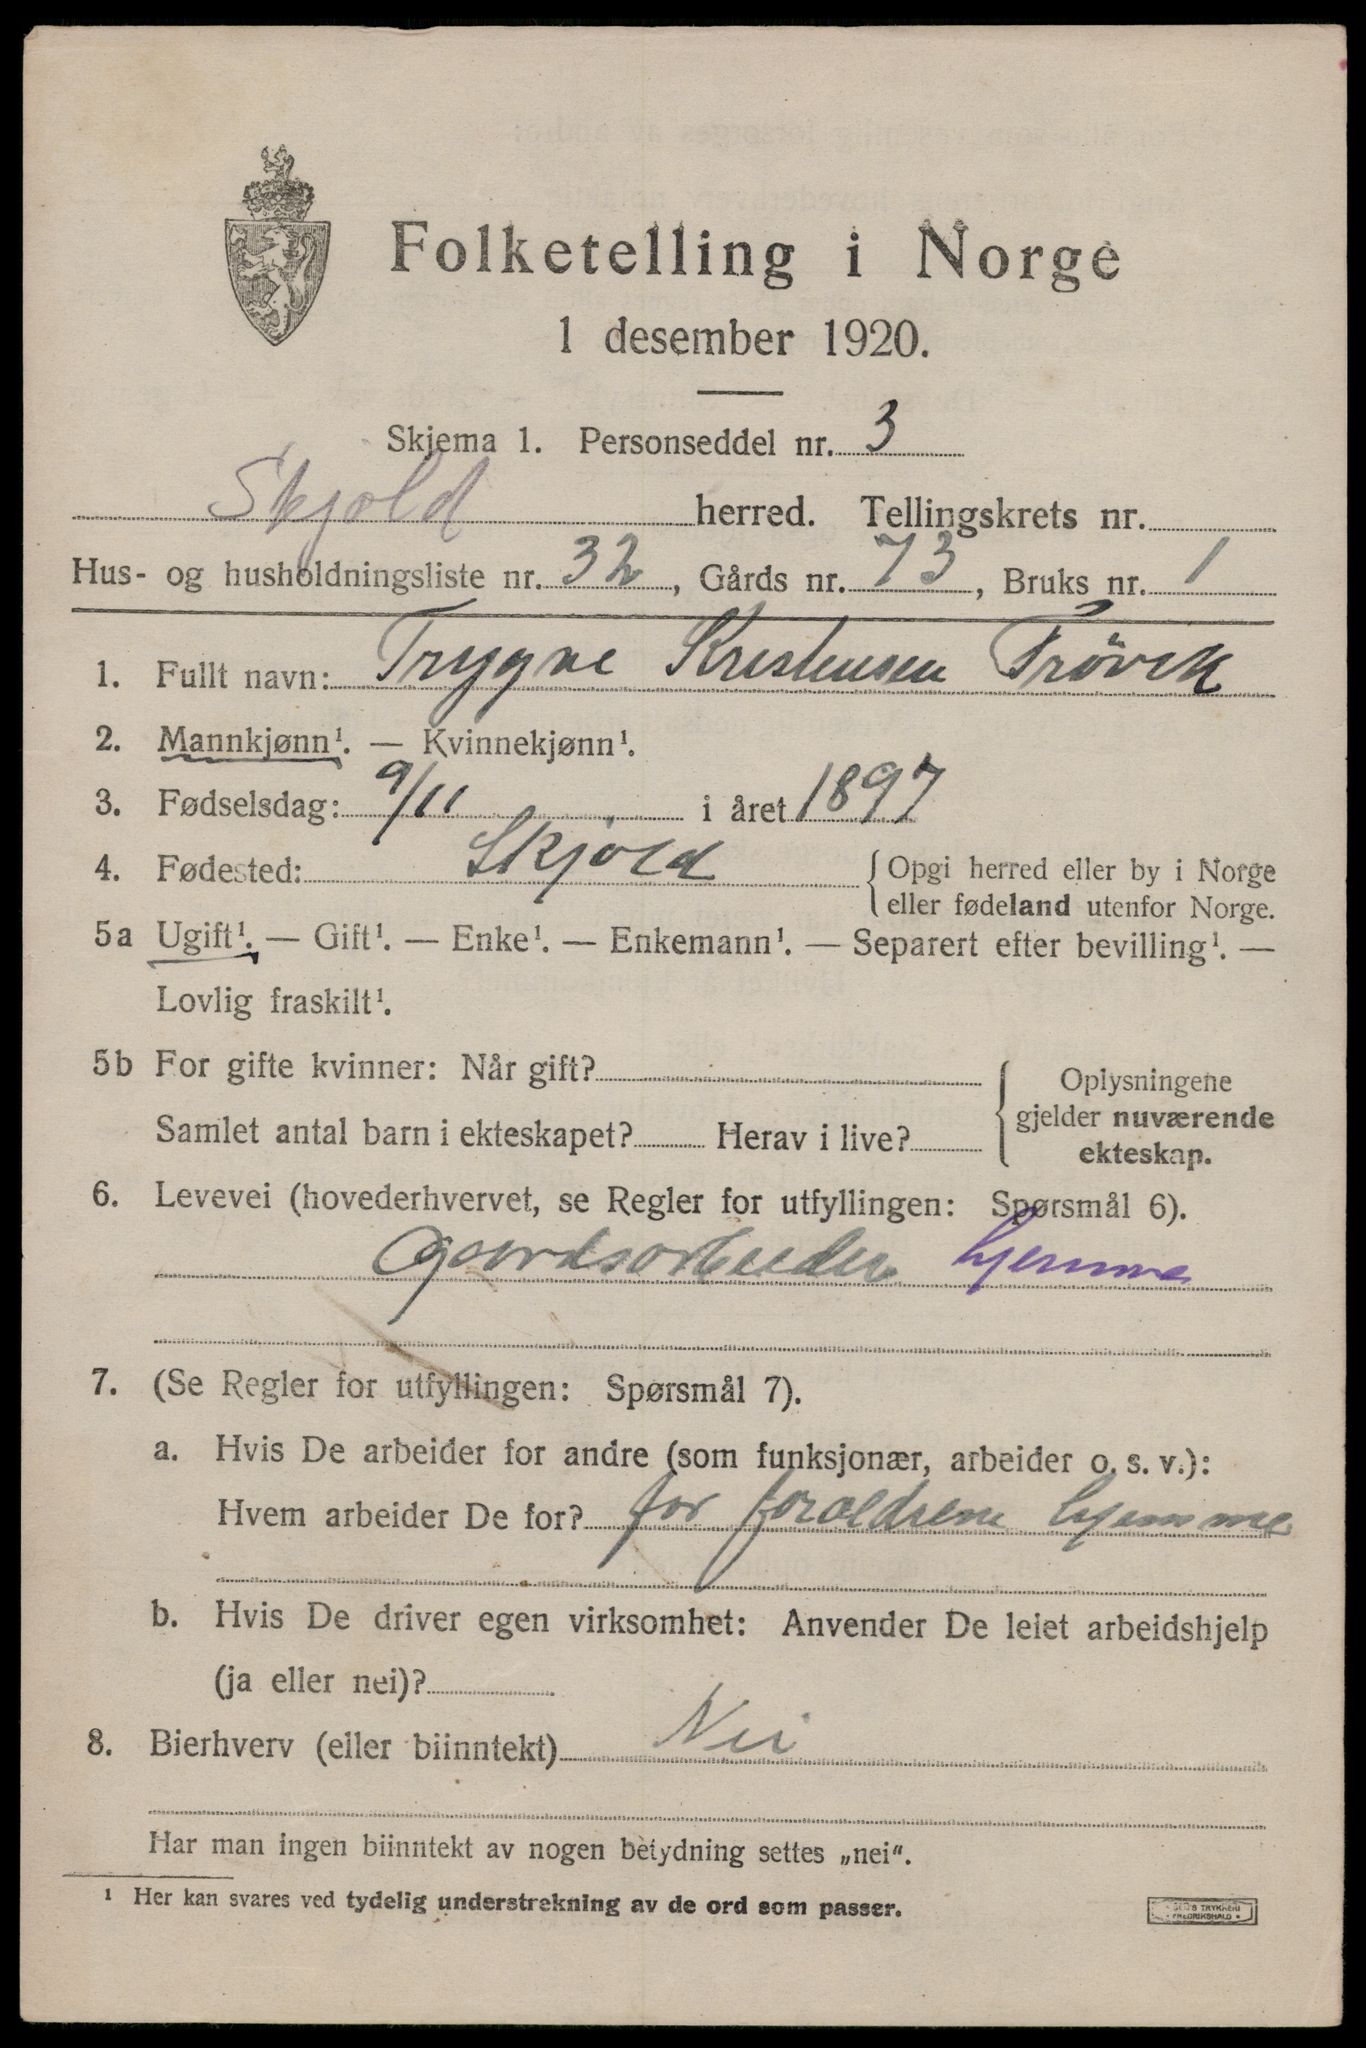 Folketelling i Norge
1 desember 1920.
Skjema 1. Personseddel nr. 3
Skjold herred. Tellingskrets nr.
Hus- og husholdningsliste nr. 32, Gårds nr. 73, Bruks nr. 1
1. Fullt navn: Trygve Kristensen Frövik
2. Mannkjønn¹. — Kvinnekjønn¹.
3. Fødselsdag: 9/11 i året 1897
4. Fødested: Skjold { Opgi herred eller by i Norge
eller fødeland utenfor Norge.
5a Ugift¹. — Gift¹. — Enke¹. — Enkemann¹. — Separert efter bevilling¹. —
Lovlig fraskilt¹.
5b For gifte kvinner: Når gift? { Oplysningene
gjelder nuværende
Samlet antal barn i ekteskapet? Herav i live?
ekteskap.
6. Levevei (hovederhvervet, se Regler for utfyllingen: Spørsmål 6).
Gaardsarbeider hjemme
7. (Se Regler for utfyllingen: Spørsmål 7).
a. Hvis De arbeider for andre (som funksjonær, arbeider o. s. v.):
Hvem arbeider De for? for foræeldrene hjemme
b. Hvis De driver egen virksomhet: Anvender De leiet arbeidshjelp
(ja eller nei)?
8. Bierhverv (eller biinntekt) Nei
Har man ingen biinntekt av nogen betydning settes „nei“.
¹ Her kan svares ved tydelig understrekning av de ord som passer.
TRYKKERI
FREDRIKSHALD